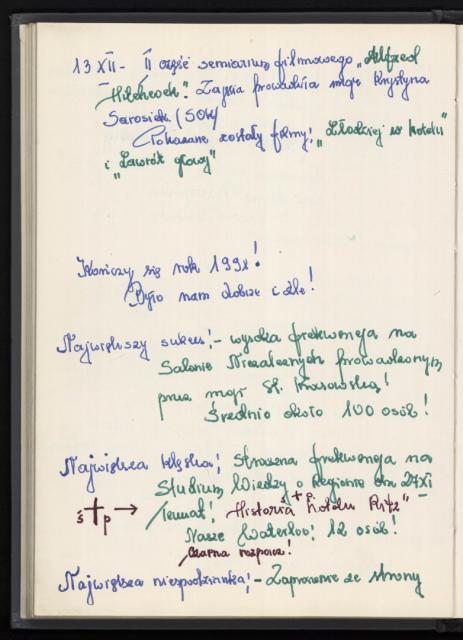 13 XII - II część seminarium filmowego "Alfred
Hitchcock". Zajęcia prowadziła mgr Krystyna
Sarosiek (SOK)
Pokazane zostały filmy: "Złodziej w hotelu"
i "Zawrót głowy"
Kończy się rok 1991!
Było nam dobrze i źle!
Największy sukces! - wysoka frekwencja na
Salonie Niezależnych prowadzonym
przez mgr St. Krasowską!
Średnio około 100 osób!
Największa klęska! Straszna frekwencja na
Studium Wiedzy o Regionie dn. 27 XI
ś + p → Temat! "Historia ś+p. hotelu Ritz"
Nasze Waterloo! 12 osób!
Czarna rozpacz!
Największa niespodzianka! - Zaproszenie ze strony